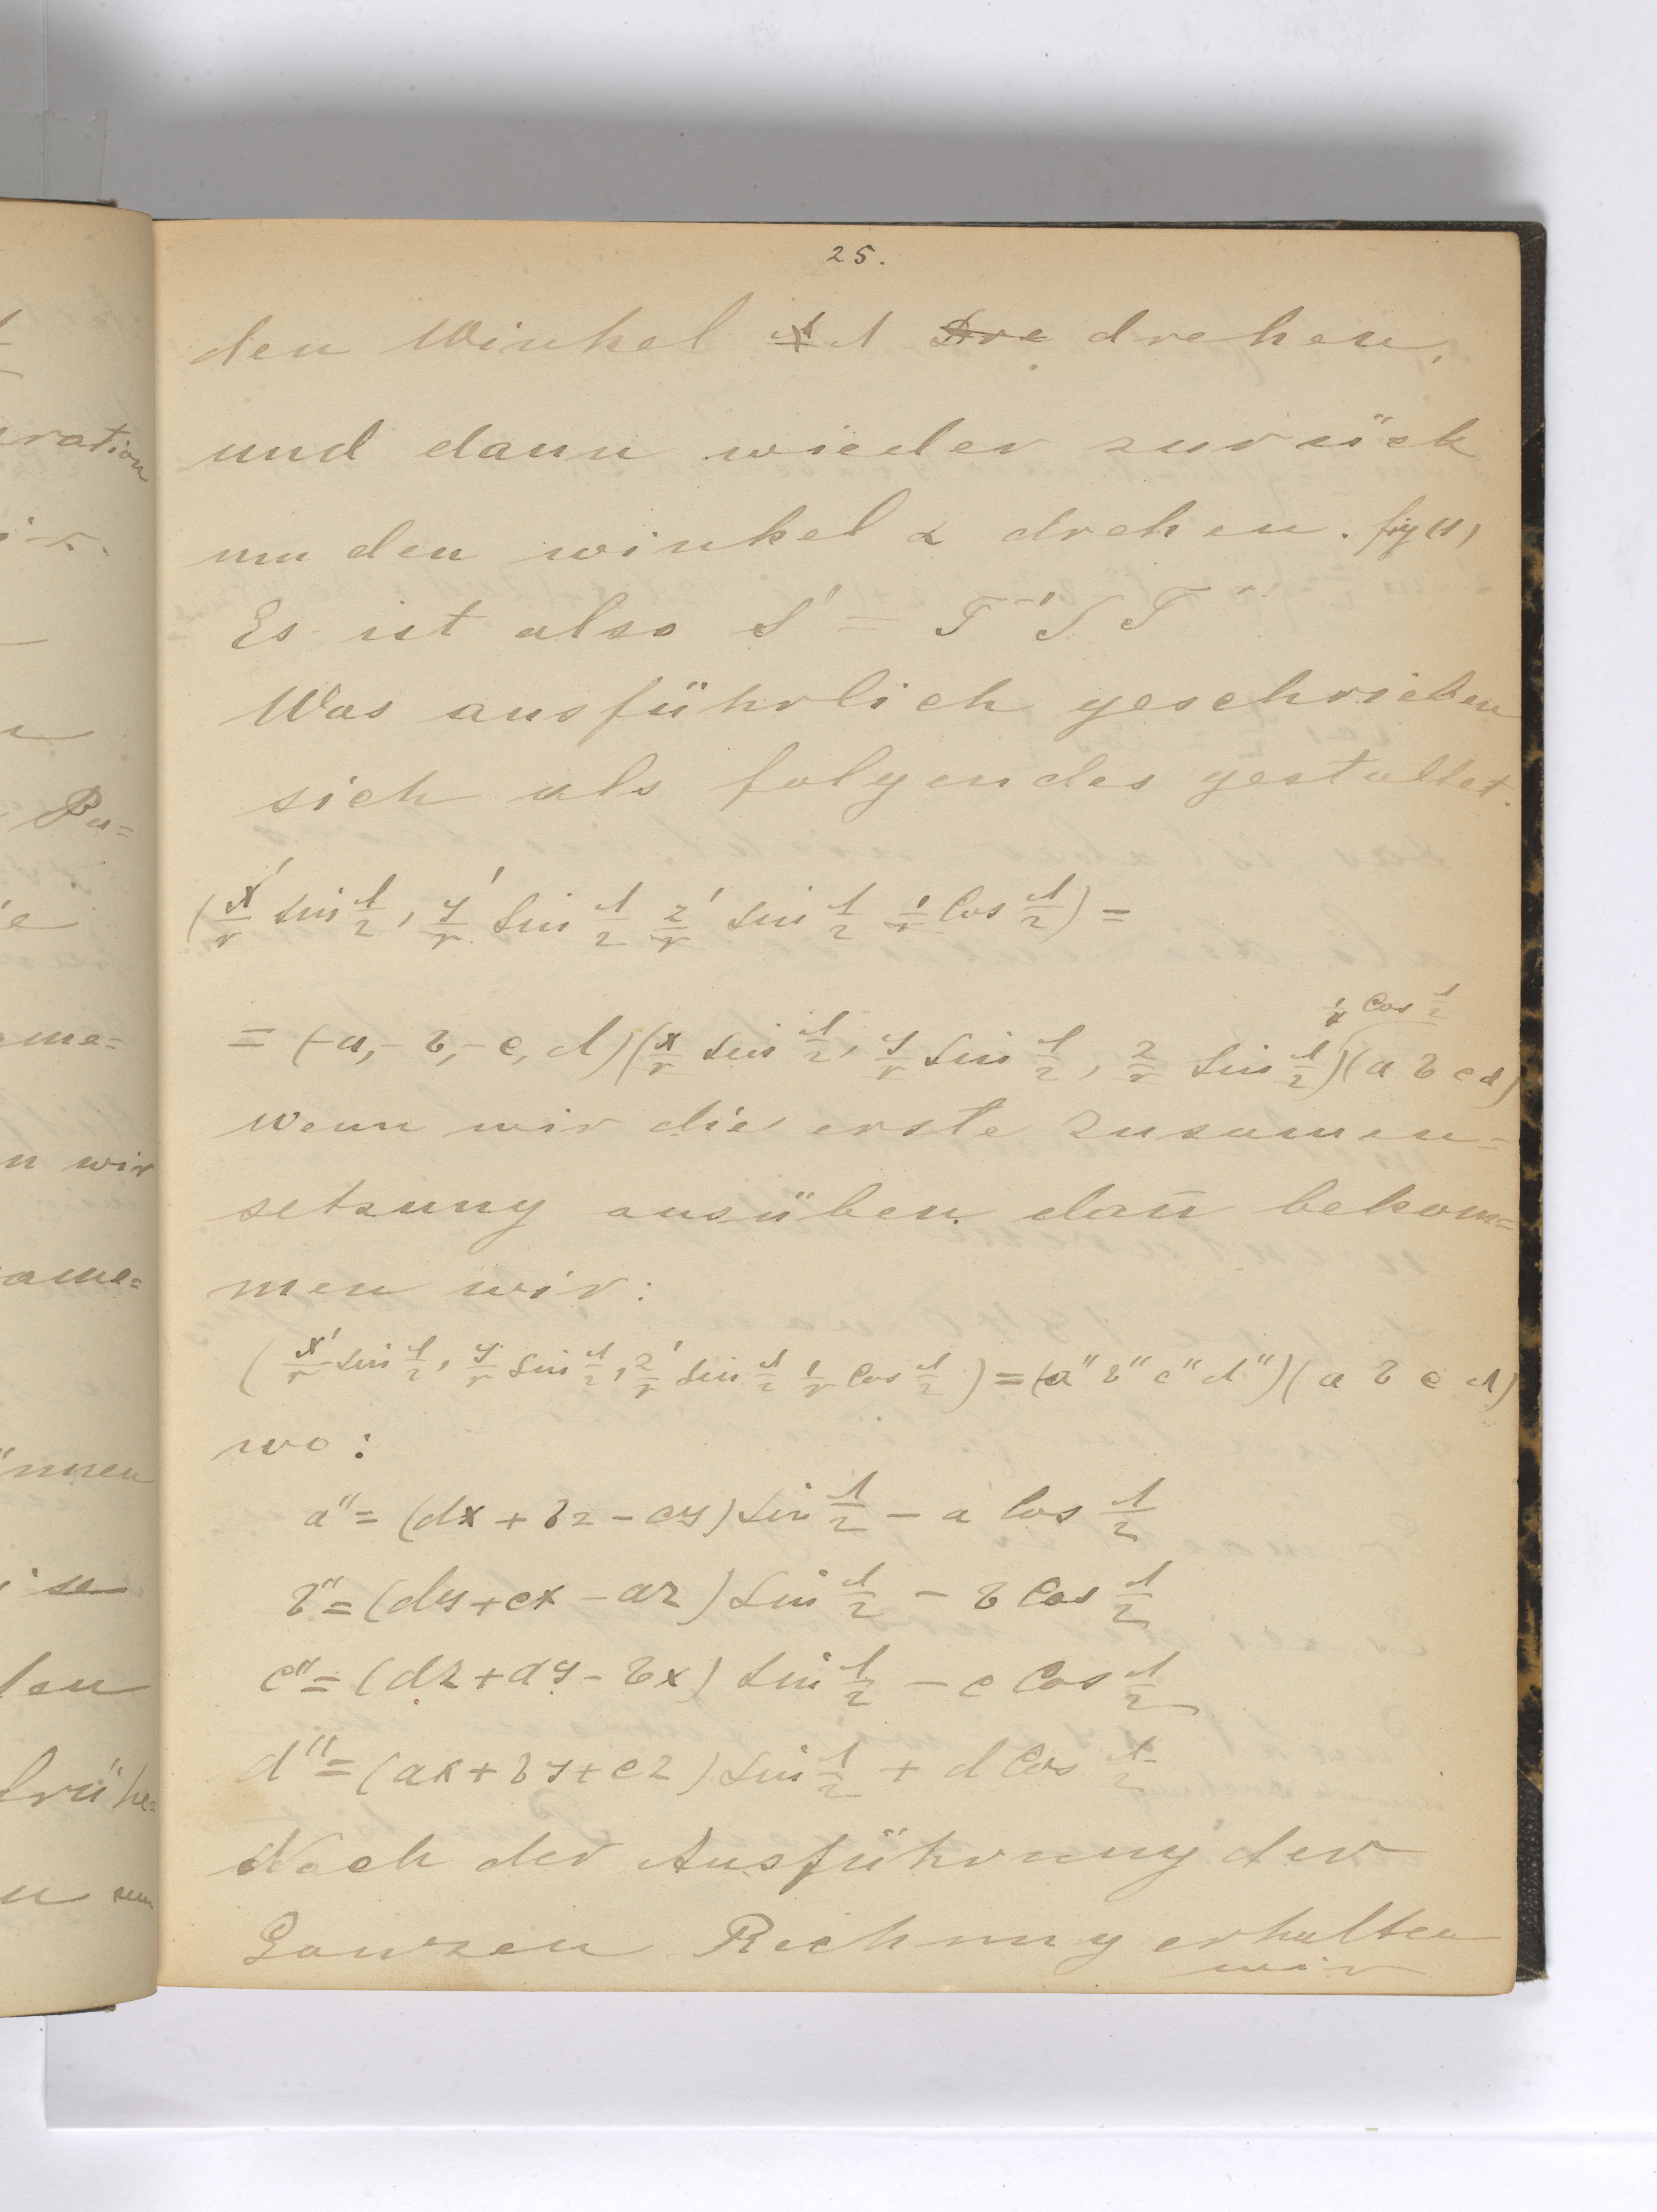 25.
den Winkel ~~Λ~~ Λ ~~Dre~~ drehen,
und dann wieder zurück
um den winkel α drehen. fig (1)
Es ist also S' = T⁻¹ S T
Was ausführlich geschrieben
sich als folgendes gestaltet.
(x'/r Sin Λ/2, y'/r Sin Λ/2 z'/r Sin Λ/2 1/r Cos Λ/2) =
1/r Cos Λ/2
= (-a, -b, -c, d)(x/r Sin Λ/2, y/r Sin Λ/2, z/r Sin Λ/2)(a b c d)
wenn wir die erste Zusamen=
setzung ausüben dan̄ bekom=
men wir:
(x'/r Sin Λ/2, y'/r Sin Λ/2, z'/r Sin Λ/2 1/r Cos Λ/2) = (a" b" c" d")(a b c d)
wo:
a" = (dx + bz - cy) Sin Λ/2 - a Cos Λ/2
b" = (dy + cx - az) Sin Λ/2 - b Cos Λ/2
c" = (dz + ay - bx) Sin Λ/2 - c Cos Λ/2
d" = (ax + by + cz) Sin Λ/2 + d Cos Λ/2
Nach der Ausführung der
Ganzen Rechnung erhalten
wir
ration
Bu=
me=
n wir
ame=
nnen
se
den
frühe=